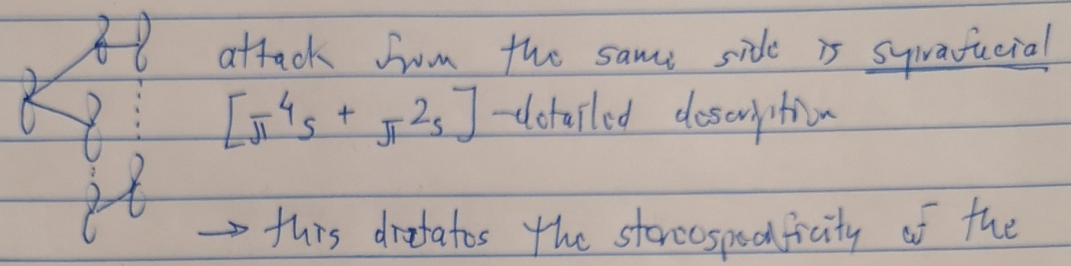 attack from the same side is suprafacial
[π4s + π2s] - detailed description
→ this dictates the stereospecificity of the